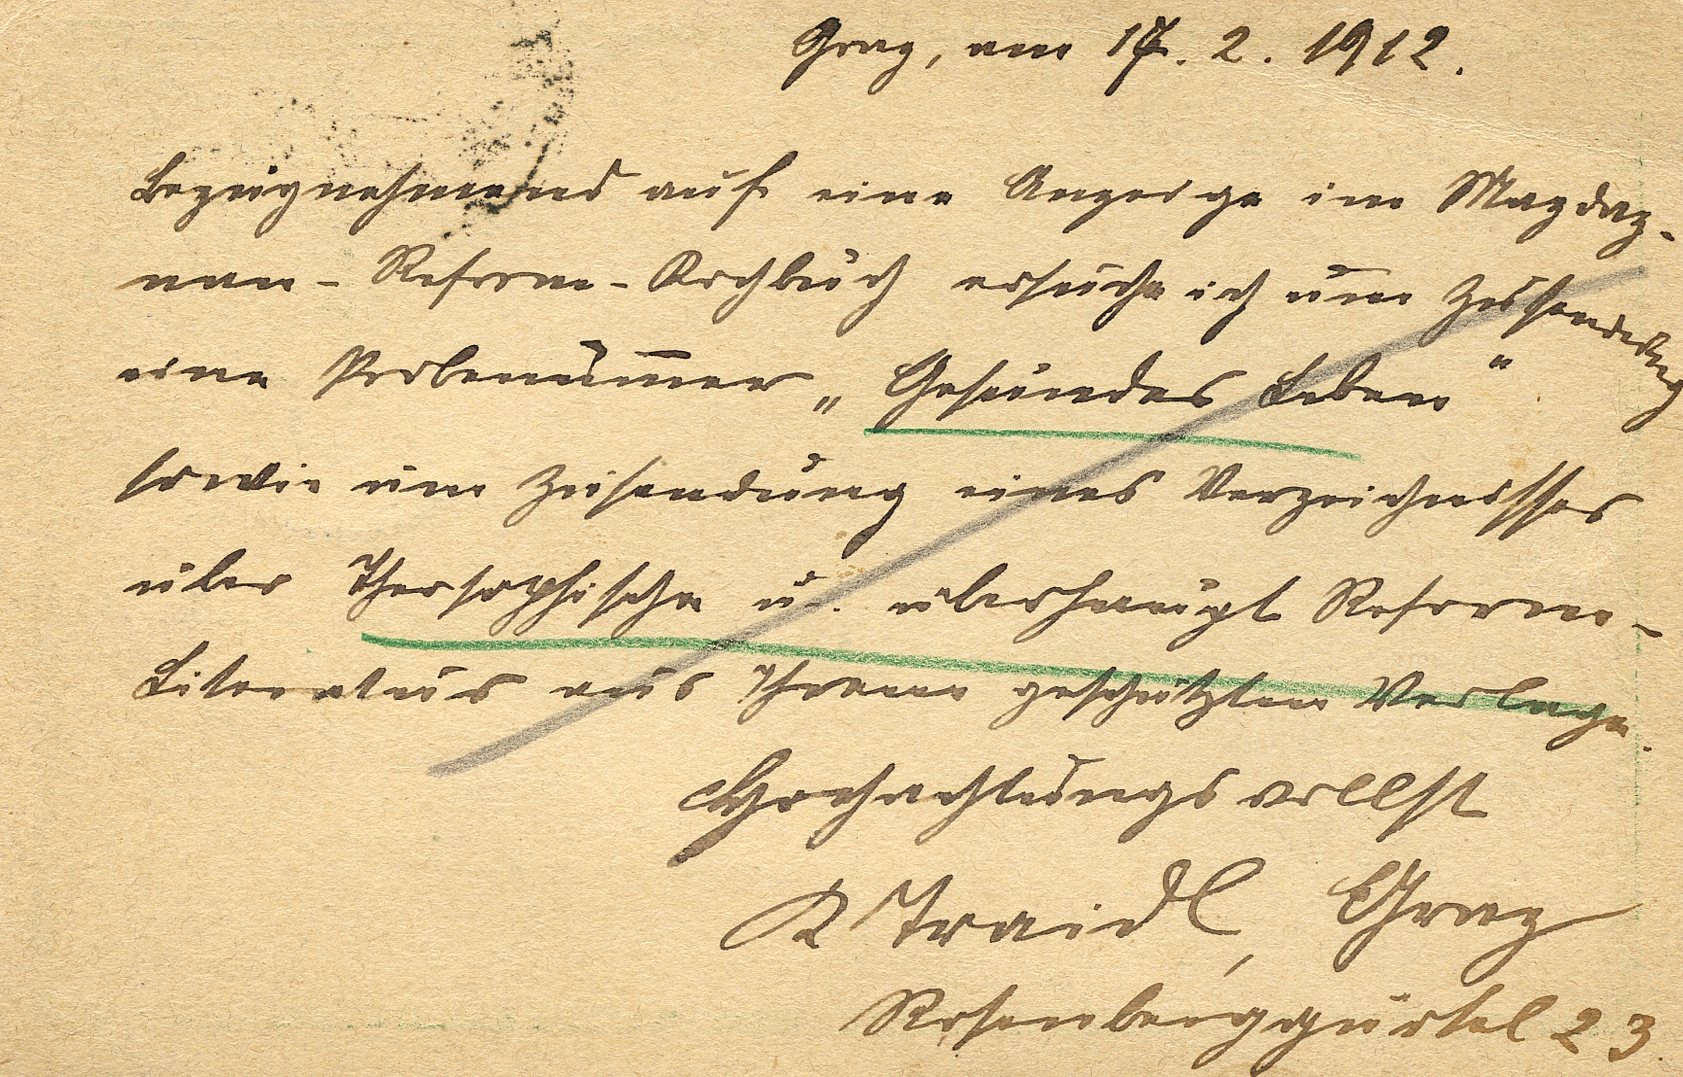 Graz, am 17. 2. 1912.
Bezugnehmend auf eine Anzeige im Mazdaz-
nan-Reform-Kochbuch ersuche ich um Zusendung
eine Probenummer „Gesundes Leben“
sowie um Zusendung eines Verzeichnisses
über Theosophische u. überhaupt Reform-
Literatur aus Ihrem geschätzten Verlage.
Hochachtungsvollst
K Traidl, Graz
Rosenberggürtel 23.